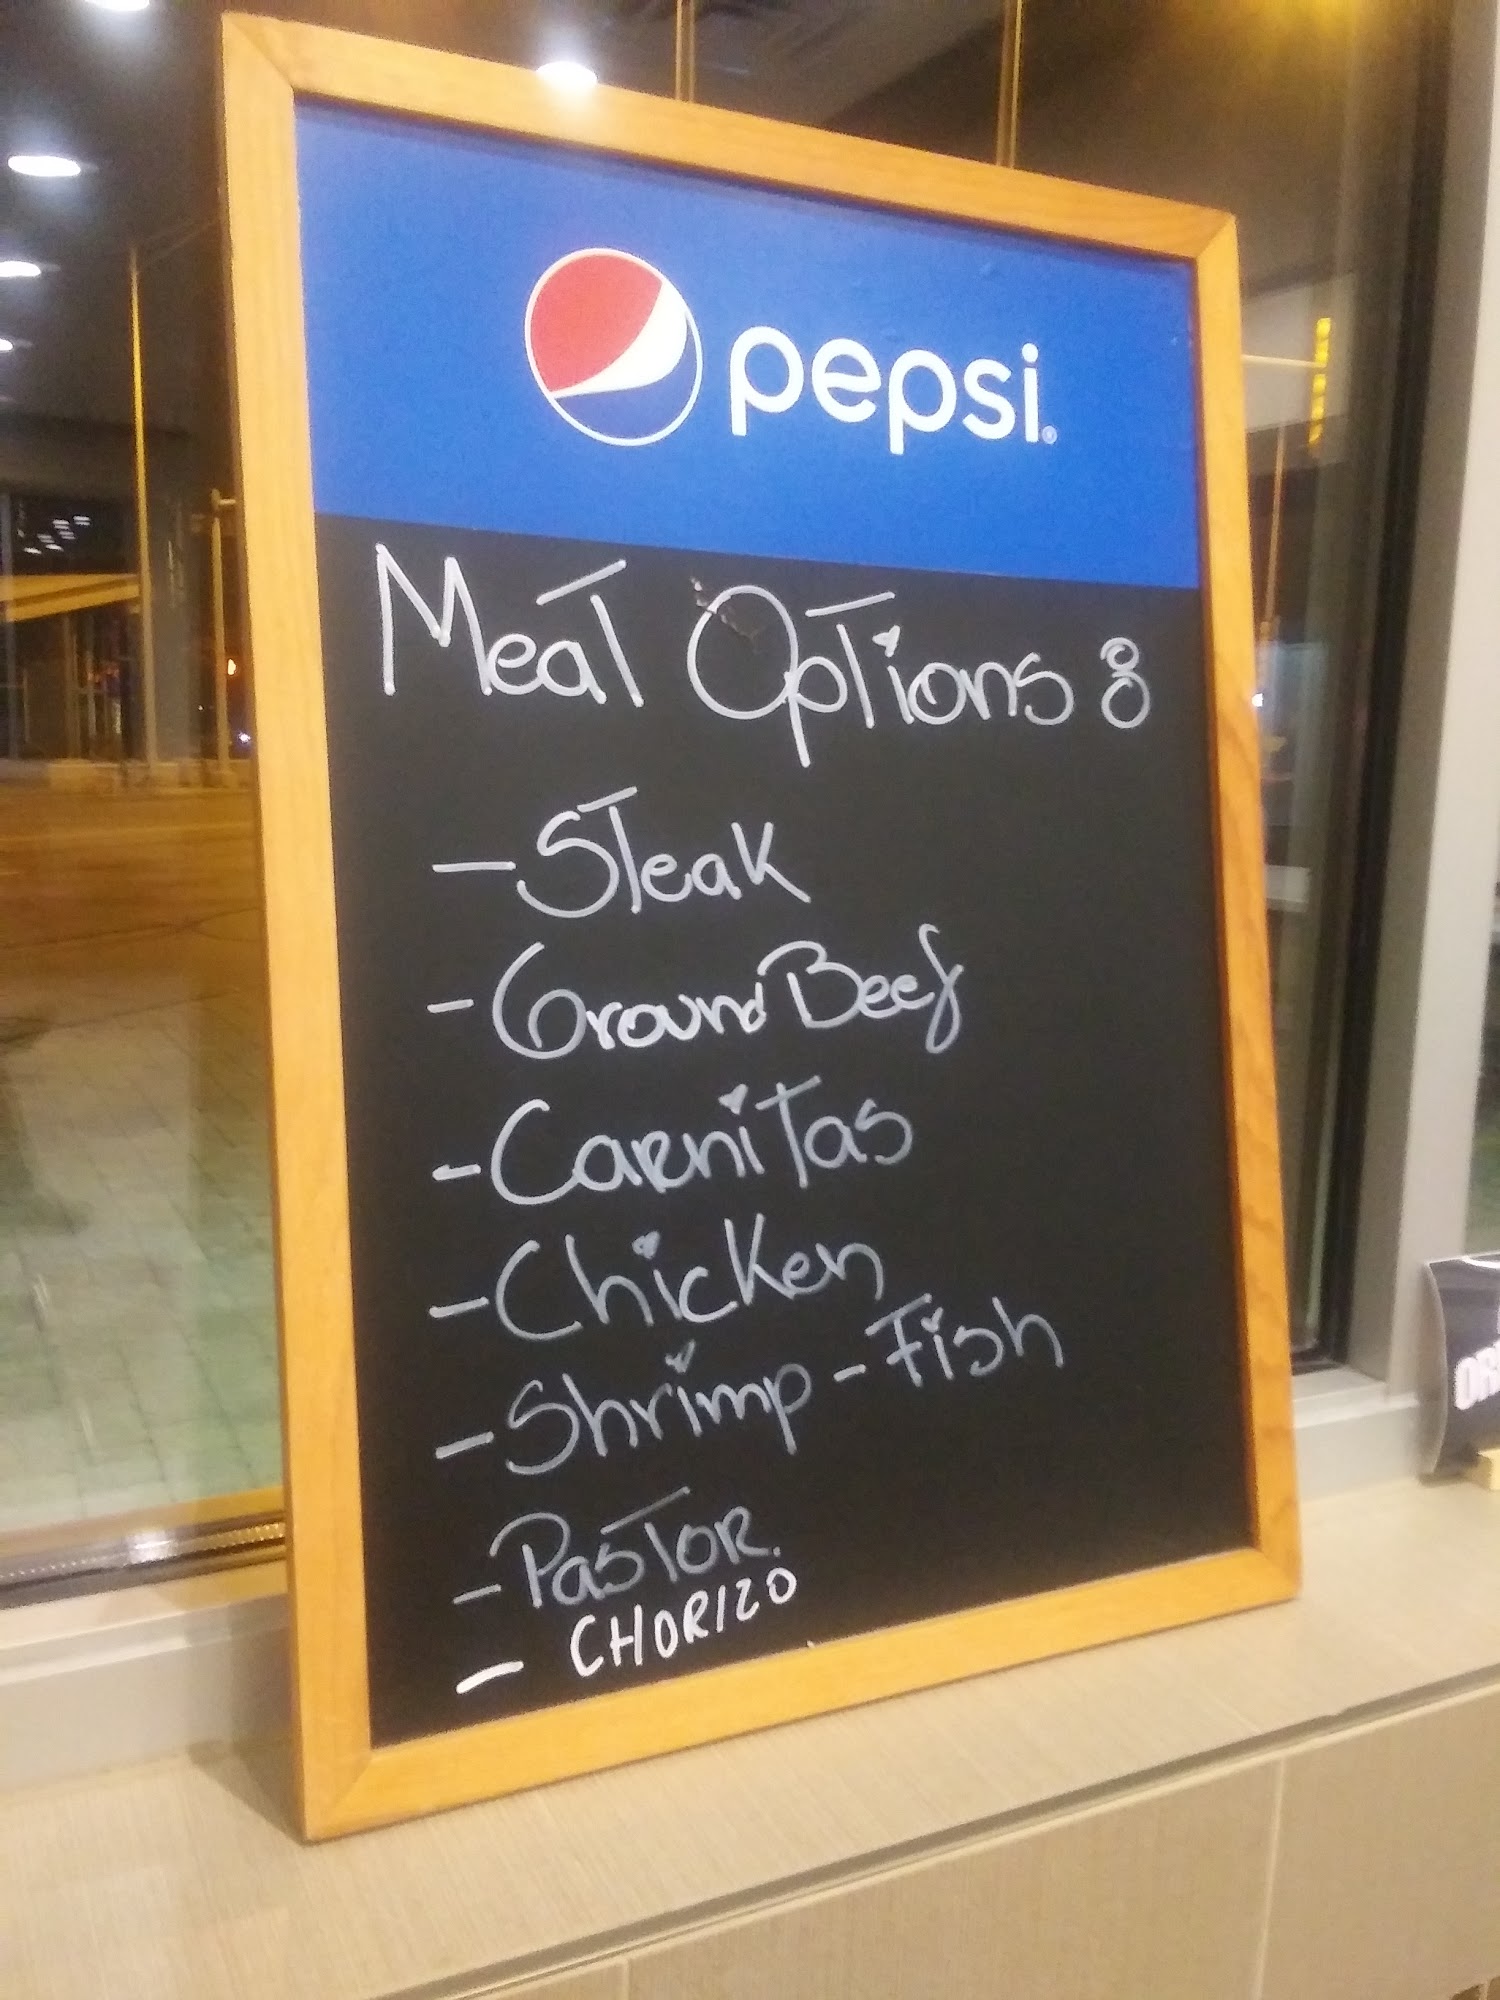 pepsi®
Meat Options:
- Steak
- Ground Beef
- Carnitas
- Chicken
- Shrimp - Fish
- Pastor.
- CHORIZO